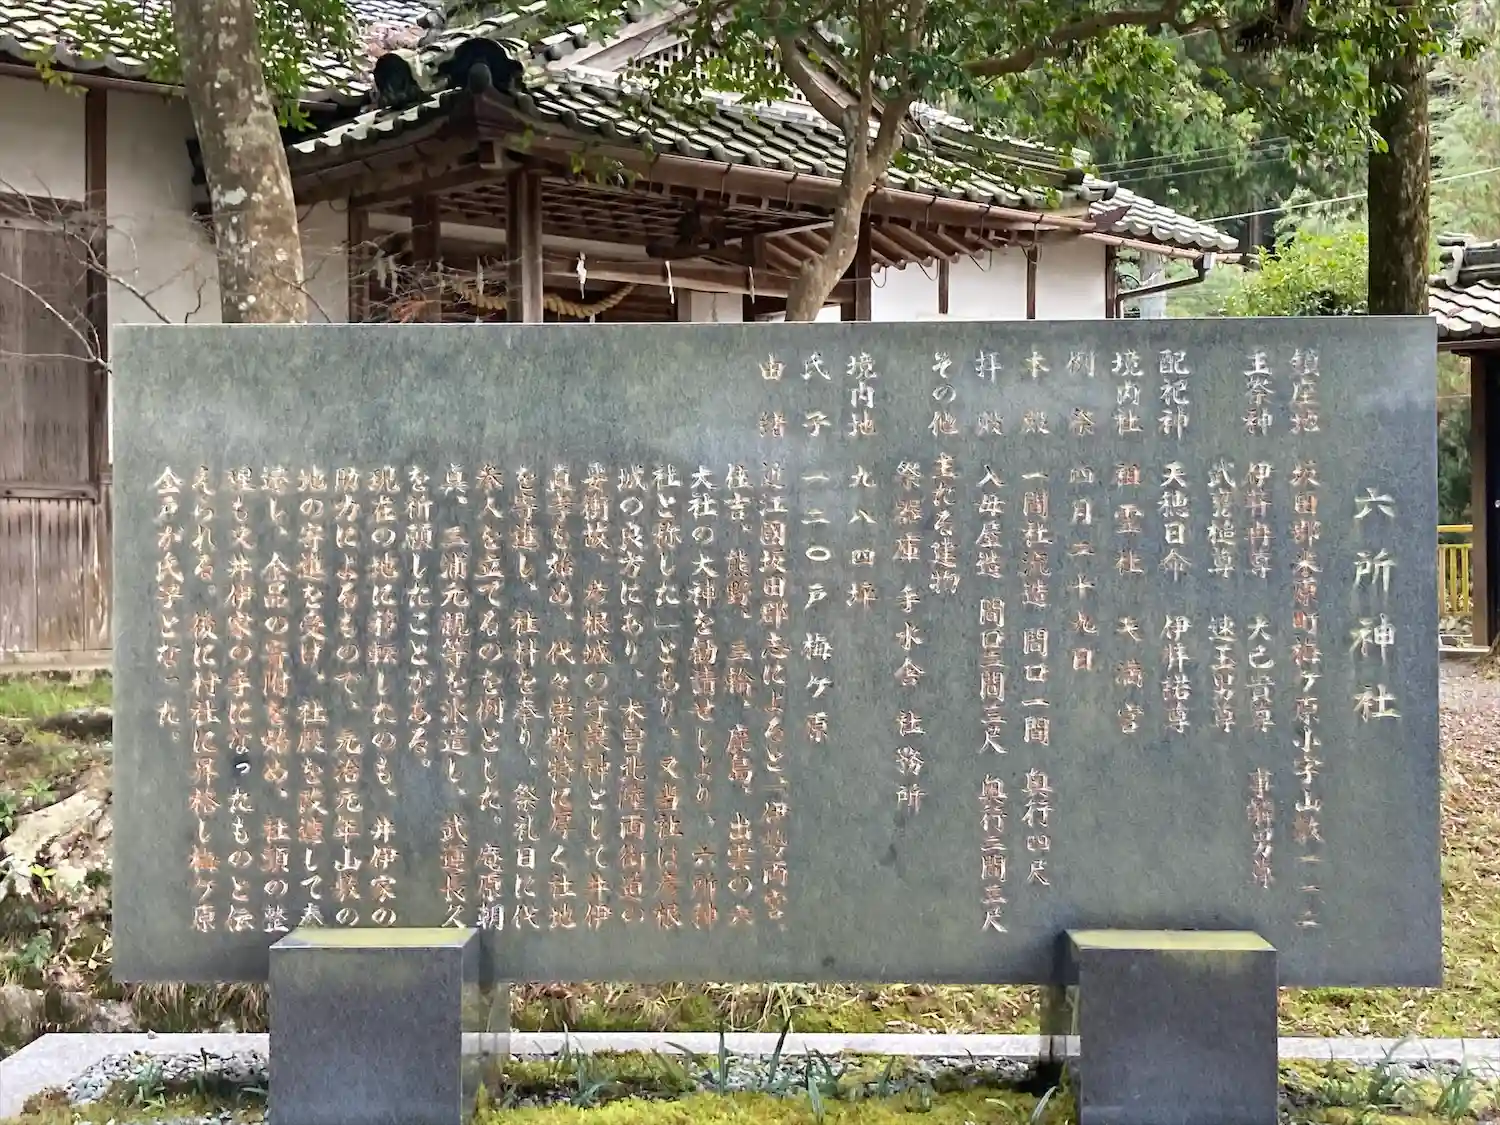 六所神社
鎮座地 坂田郡米原町梅ケ原小字山蔭
主祭神 伊弉冉尊 大己貴尊 事解男尊
武甕槌尊 速玉男尊
配祀神 天穂日命 伊弉諾尊
境内社 祖霊社 天満宮
例祭 四月二十九日
本殿 一間社流造 間口一間 奥行四尺
拝殿 入母屋造 間口三間三尺 奥行二間三尺
その他 主たる建物
祭器庫 手水舎 社務所
境内地 九八四坪
氏子 一二〇戸 梅ケ原
由緒 近江國坂田郡志によると「伊勢両宮、
住吉、熊野、三輪、鹿島、出雲の六
大社の大神を勧請せしより、六所神
社と称した」とあり、又当社は彦根
城の良方にあり、木曽北陸両街道の
要衝故、彦根城の守護神として井伊
直孝を始め、代々崇敬特に厚く社地
を寄進し、社材を奉り、祭礼日に代
参人を立てるのを例とした。庵原朝
真、三浦元親等を派遣し、武運長久
を祈願したことがある。
現在の地に移転したのも、井伊家の
助力によるもので、元治元年山蔭の
地の寄進を受け、社殿を改造して奉
遷し、金品の寄附を始め、社頭の整
理も又井伊家の手になったものと伝
えられる。後に村社に昇格し梅ケ原
全戸が氏子となった。